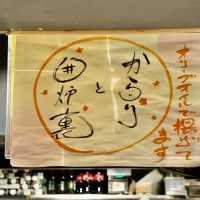 オリーブオイルで揚げて
ます
からり
と